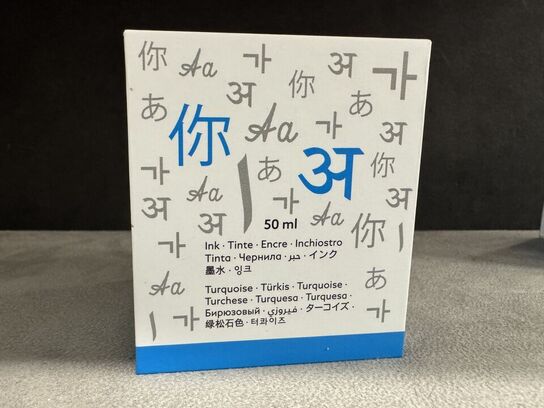 你 Aa 가 अ 가
あ अ 你 あ
你 Aa 가 अ
가 अ あ अ 你
अ Aa ا 가 Aa 你 अ
가 Aa 50 ml ا
Ink · Tinte · Encre · Inchiostro
Tinta · Чернила · حبر · インク
墨水 · 잉크
Aa あ 가
Turquoise · Türkis · Turquoise ·
Turchese · Turquesa · Turquesa ·
Бирюзовый · فيروزي · ターコイズ ·
绿松石色 · 터콰이즈
ا 가 你